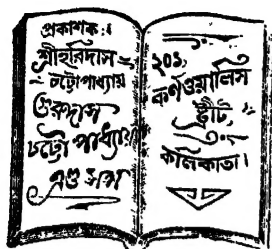 প্রকাশক :
শ্রীহরিদাস
চট্টোপাধ্যায়
গুরুদাস
চট্টোপাধ্যায়
এণ্ড সন্স
২০১,
কর্ণওয়ালিস
ষ্ট্রীট,
কলিকাতা।